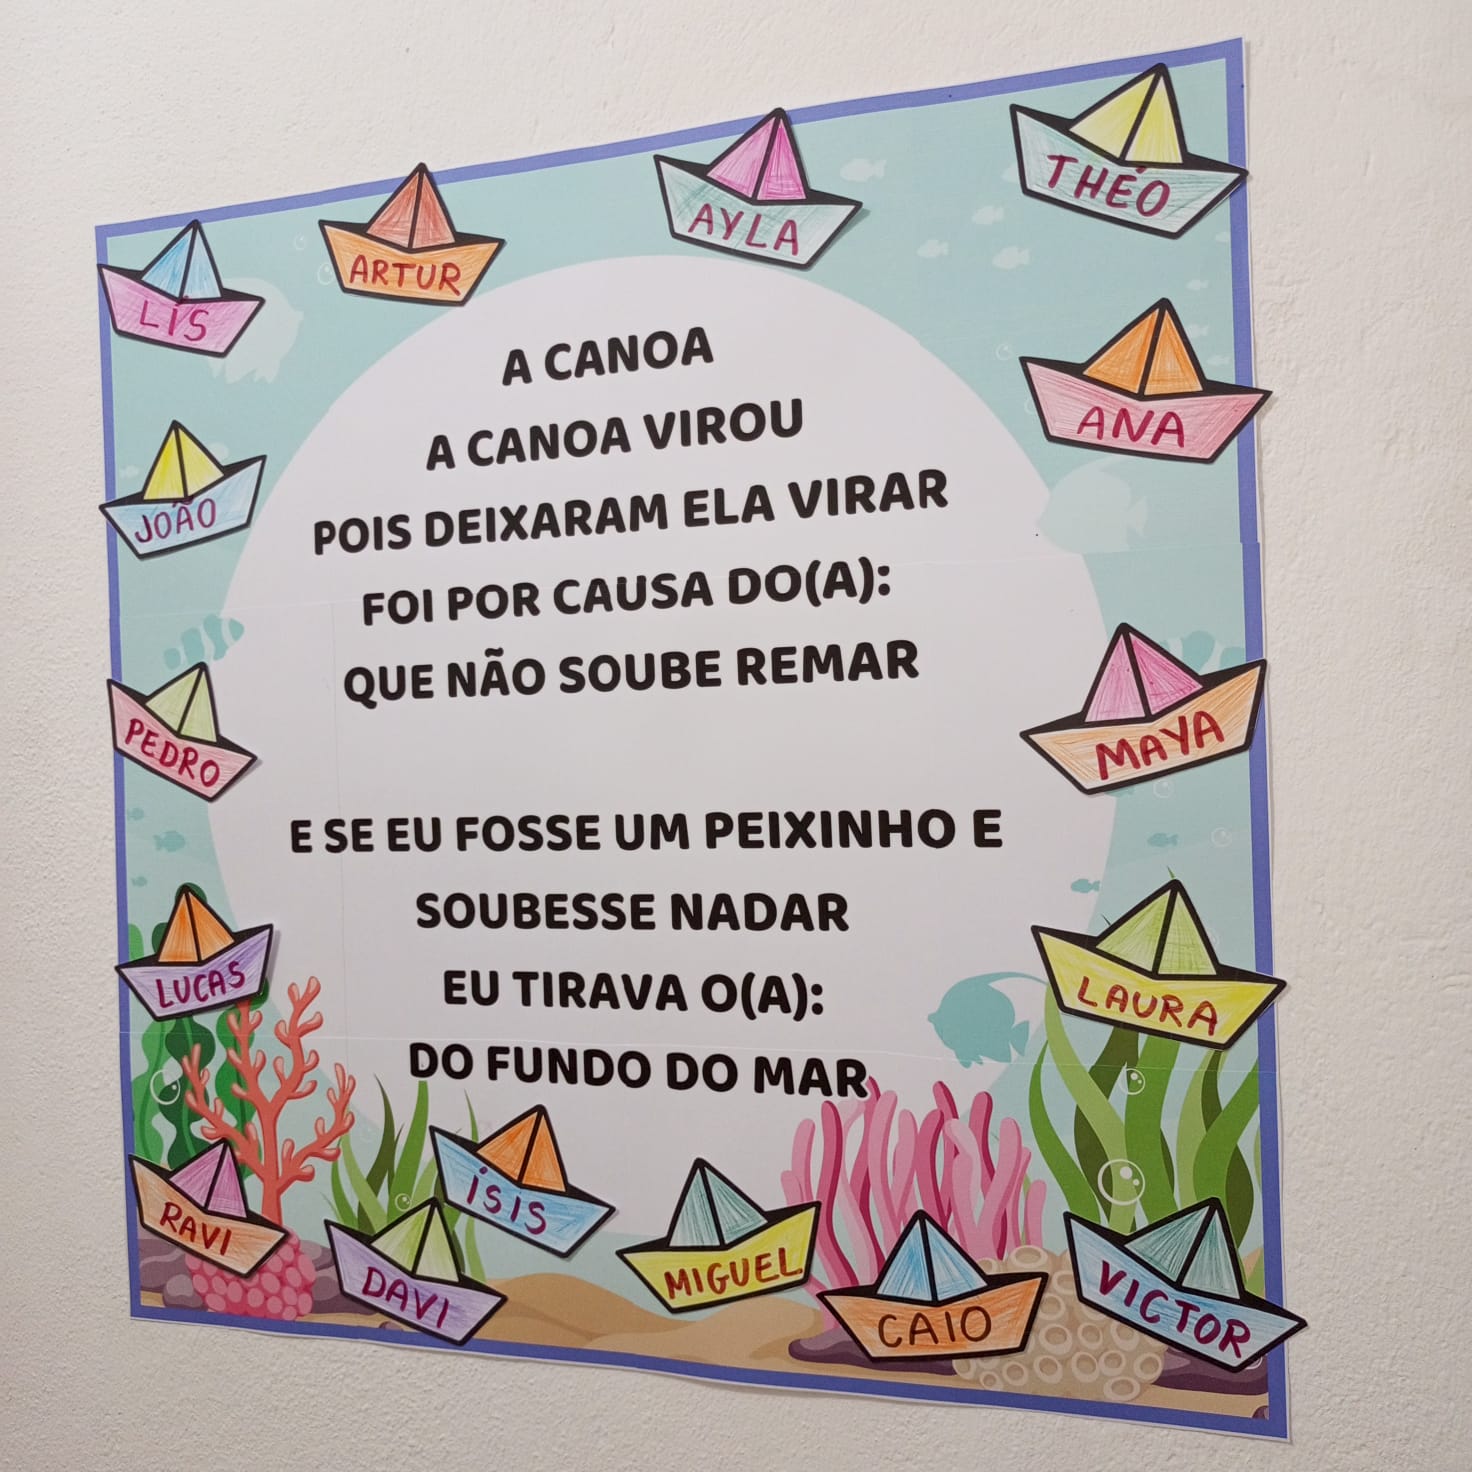 THÉO
AYLA
ARTUR
LÍS
A CANOA
A CANOA VIROU
POIS DEIXARAM ELA VIRAR
FOI POR CAUSA DO(A):
QUE NÃO SOUBE REMAR
ANA
JOÃO
PEDRO
MAYA
E SE EU FOSSE UM PEIXINHO E
SOUBESSE NADAR
EU TIRAVA O(A):
DO FUNDO DO MAR
LUCAS
LAURA
RAVI
ÍSIS
DAVI
MIGUEL
CAIO
VICTOR